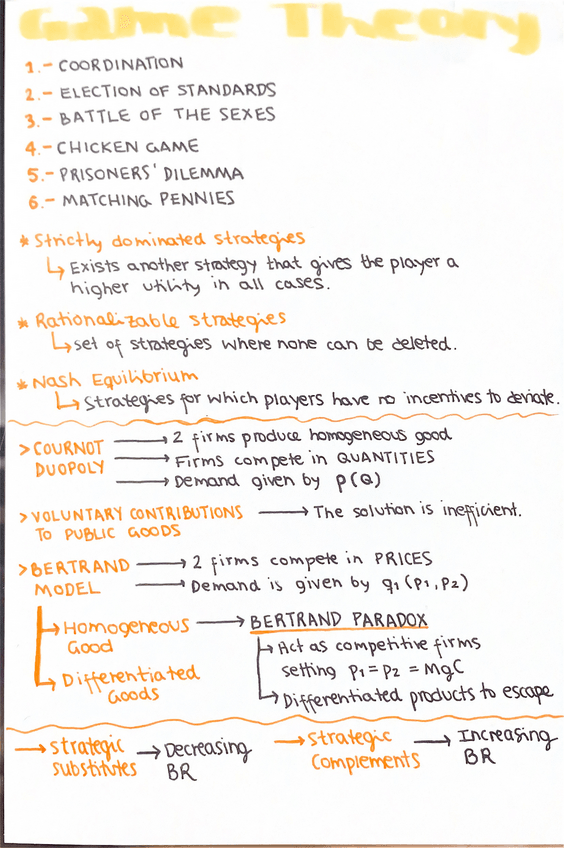 Game Theory
1.- COORDINATION
2.- ELECTION OF STANDARDS
3.- BATTLE OF THE SEXES
4.- CHICKEN GAME
5.- PRISONERS' DILEMMA
6.- MATCHING PENNIES
* Strictly dominated strategies
↳ Exists another strategy that gives the player a
higher utility in all cases.
* Rationalizable strategies
↳ set of strategies where none can be deleted.
* Nash Equilibrium
↳ Strategies for which players have no incentives to deviate.
> COURNOT DUOPOLY → 2 firms produce homogeneous good
→ Firms compete in QUANTITIES
→ Demand given by p(Q)
> VOLUNTARY CONTRIBUTIONS → The solution is inefficient.
TO PUBLIC GOODS
> BERTRAND MODEL → 2 firms compete in PRICES
→ Demand is given by q₁(p₁,p₂)
↳ Homogeneous Good → BERTRAND PARADOX
↳ Act as competitive firms
setting p₁=p₂=MgC
↳ Differentiated products to escape
↳ Differentiated Goods
→ strategic substitutes → Decreasing BR
→ strategic complements → Increasing BR